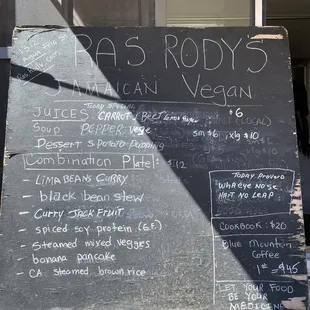 RAS RODY'S
JAMAICAN Vegan
TODAY SPECIAL
JUICES CARROT / BEET $6
Soup PEPPER vege sm $6 ; xlg $10
Dessert S. POTATO Pudding
Combination Plate: $12
- LIMA BEANS CURRY
- black bean stew
- Curry JACK FRUIT
- spiced soy protein (G.F)
- steamed mixed veggies
- banana pancake
- CA. steamed brown rice
TODAY Proverb
WHA EYE NOSE
HA'T NO LEAP
COOKBOOK $20
Blue Mountain
Coffee
1# = $45
LET YOUR FOOD
BE YOUR
MEDICINE